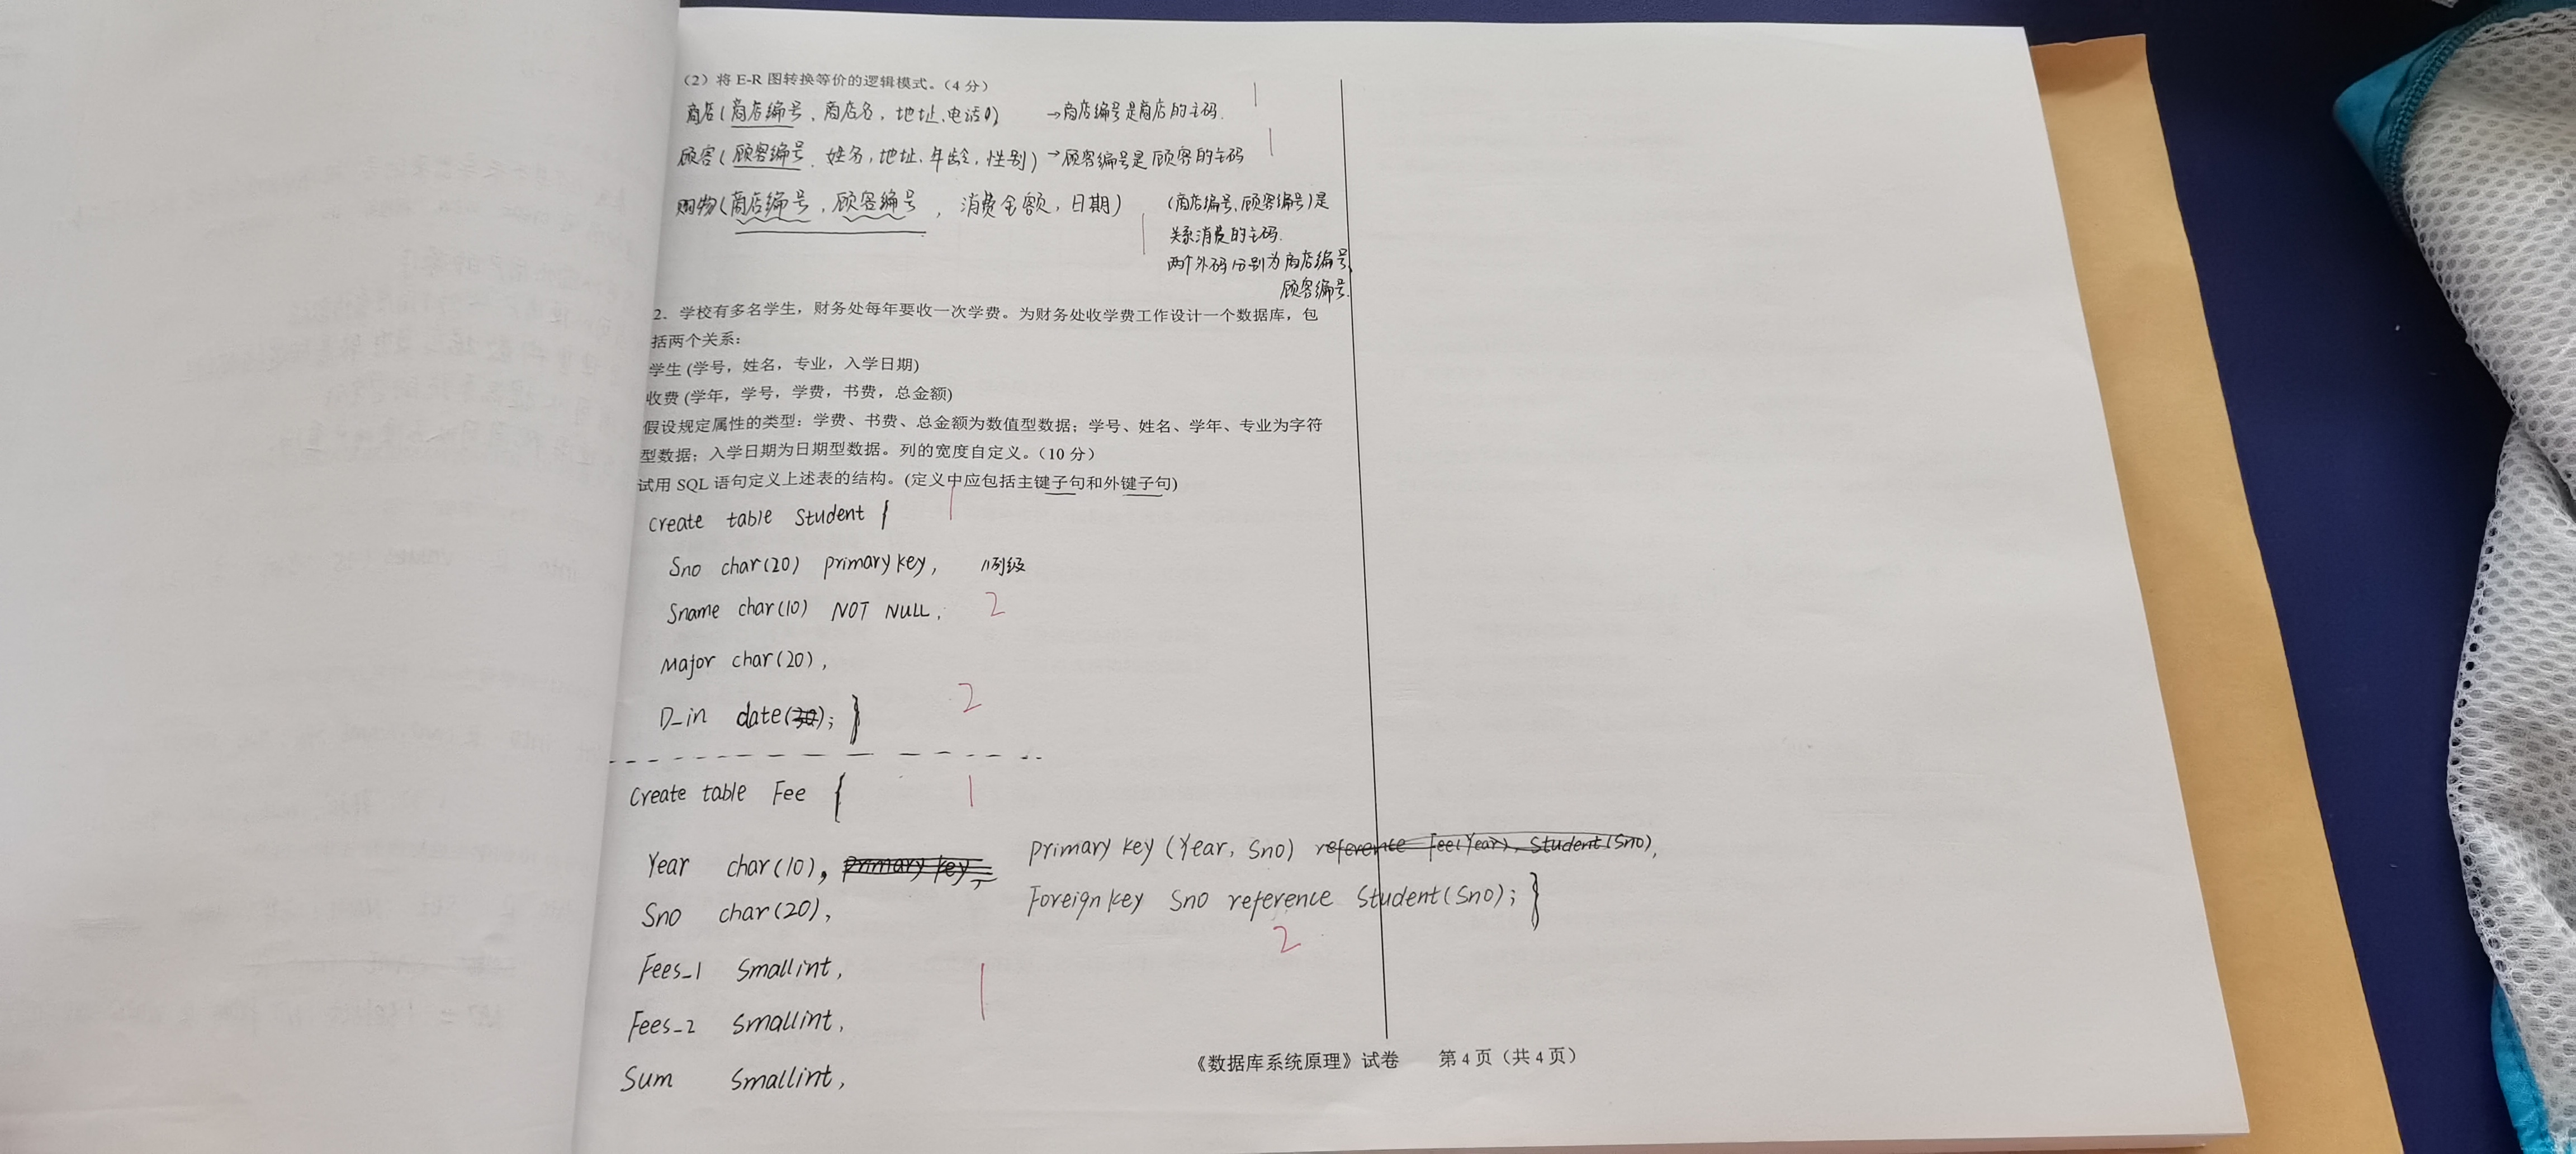 （2）将 E-R 图转换等价的逻辑模式。（4 分）
商店(商店编号, 商店名, 地址, 电话) →商店编号是商店的主码.
顾客(顾客编号, 姓名, 地址, 年龄, 性别) →顾客编号是顾客的主码
购物(商店编号, 顾客编号, 消费金额, 日期)
(商店编号, 顾客编号)是
关系消费的主码.
两个外码分别为商店编号,
顾客编号.
2．学校有多名学生，财务处每年要收一次学费。为财务处收学费工作设计一个数据库，包
括两个关系：
学生 (学号，姓名，专业，入学日期)
收费 (学年，学号，学费，书费，总金额)
假设规定属性的类型：学费、书费、总金额为数值型数据；学号、姓名、学年、专业为字符
型数据；入学日期为日期型数据。列的宽度自定义。（10 分）
试用 SQL 语句定义上述表的结构。(定义中应包括主键子句和外键子句)
1
Create table Student {
Sno char(20) primary key, //列级
Sname char(10) NOT NULL, 2
Major char(20),
D_in date( ); } 2
Create table Fee { 1
Year char(10), primary key,
Sno char(20),
Fees_1 Smallint, 1
Fees_2 Smallint,
Sum Smallint,
primary key (Year, Sno) reference Fee(Year), Student(Sno),
Foreign key Sno reference Student(Sno); }
2
《数据库系统原理》试卷 第 4 页（共 4 页）